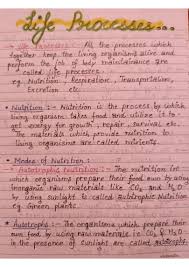 Life Processes...
→ Life Processes : All the processes which
together keep the living organisms alive and
perform the job of body maintainance are
called life processes.
eg. Nutrition, Respiration, Transportation,
Excretion etc
• Nutrition :- Nutrition is the process by which
living organisms takes food and utilize it to
get energy for growth, repair, survival etc.
The materials which provide nutrition to
living organisms are called nutrients.
• Modes of Nutrition :
→ Autotrophic Nutrition : The nutrition in
which organisms prepare their food own by using
inorganic raw materials like CO2 and H2O
by using sunlight is called autotrophic Nutrition
eg. Green plants.
• Autotrophs : The organisms which prepared their
own food by using raw materials i.e. CO2 & H2O
in the presence of sunlight are called autotrophs.